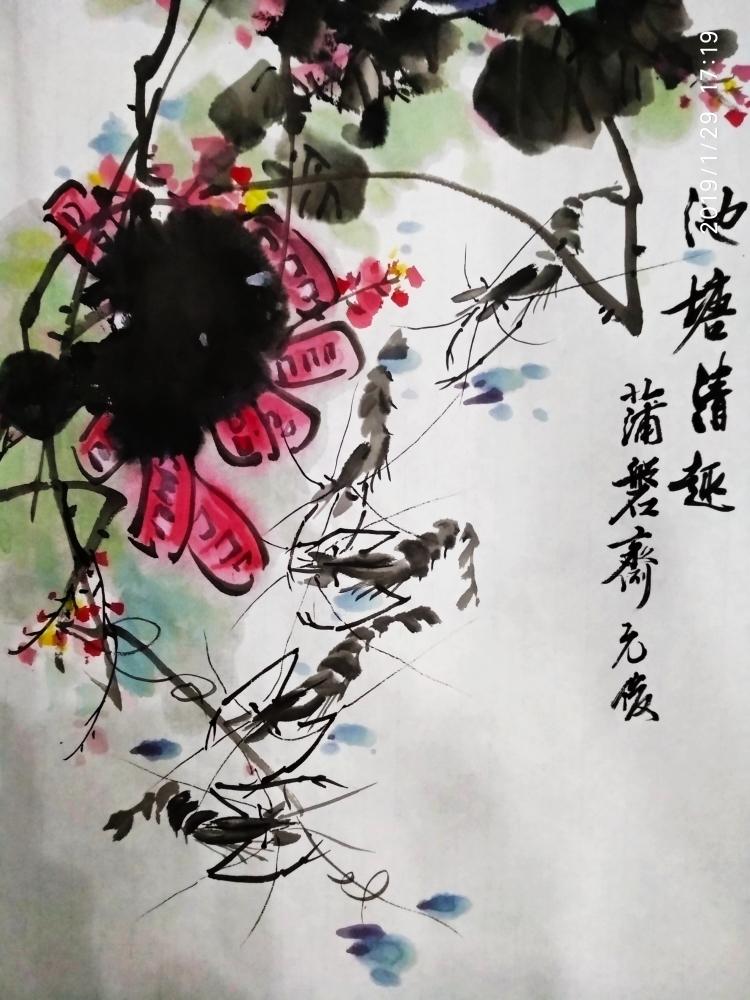 池塘清趣
北蒲磐斋元俊
2019/1/29 17:19